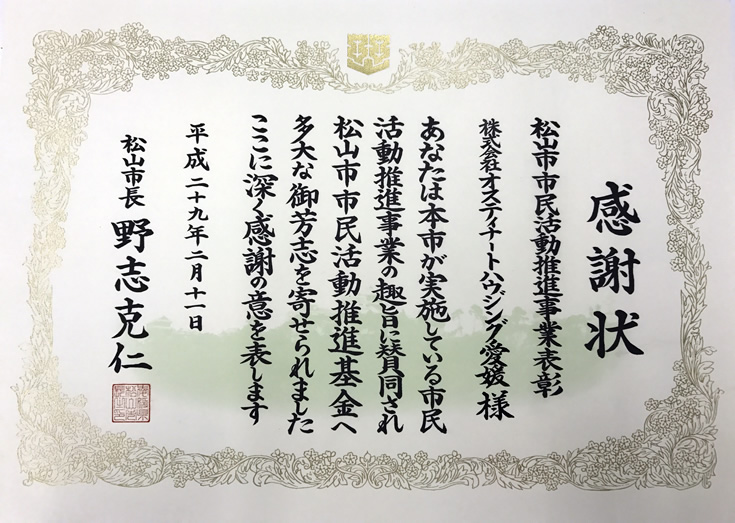 感謝状
松山市市民活動推進事業表彰
株式会社オスティアートハウジング愛媛様
あなたは本市が実施している市民
活動推進事業の趣旨に賛同され
松山市市民活動推進基金へ
多大な御芳志を寄せられました
ここに深く感謝の意を表します
平成二十九年二月十一日
松山市長 野志克仁